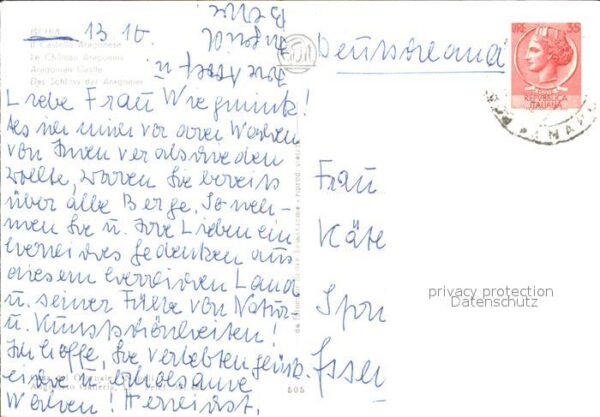 ISCHIA 13.10.
Il Castello Aragonese
Le Château Aragonais
Aragonian Castle
Das Schloss der Aragonier
Liebe Frau Wiegmink!
Als ich mich vor drei Wochen
von Ihnen verabschieden
wollte, waren Sie bereits
über alle Berge. So neh-
men Sie u. Ihre Lieben ein
herzliches Gedenken aus
diesem herrlichen Land
u. seiner Fülle von Natur-
u. Kunstschönheiten!
Ich hoffe, Sie verlebten glück-
liche u. erholsame
Wochen! Herzlichst,
Ihre
Deutschland
LIRE 35
REPUBBLICA
ITALIANA
Frau
Käte
Essen
505
privacy protection
Datenschutz